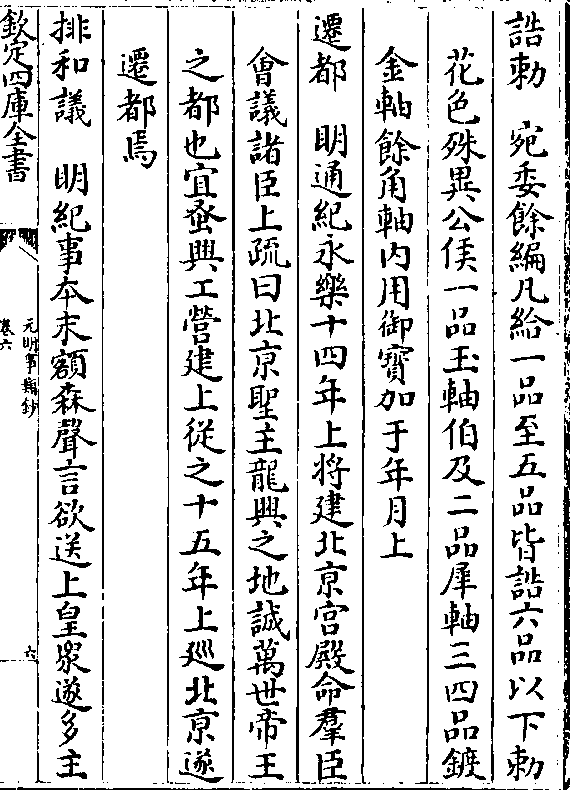 誥勅　宛委餘編凡給一品至五品皆誥六品以下勅
花色殊異公侯一品玉軸伯及二品犀軸三四品鍍
金軸餘角軸内用御寶加于年月上
遷都　明通紀永樂十四年上将建北京宫殿命羣臣
會議諸臣上疏曰北京聖主龍興之地誠萬世帝王
之都也宜蚤興工營建上從之十五年上廵北京遂
遷都焉
排和議　明紀事本末額森聲言欲送上皇衆遂多主
欽定四庫全書
元明事類鈔
卷六
六